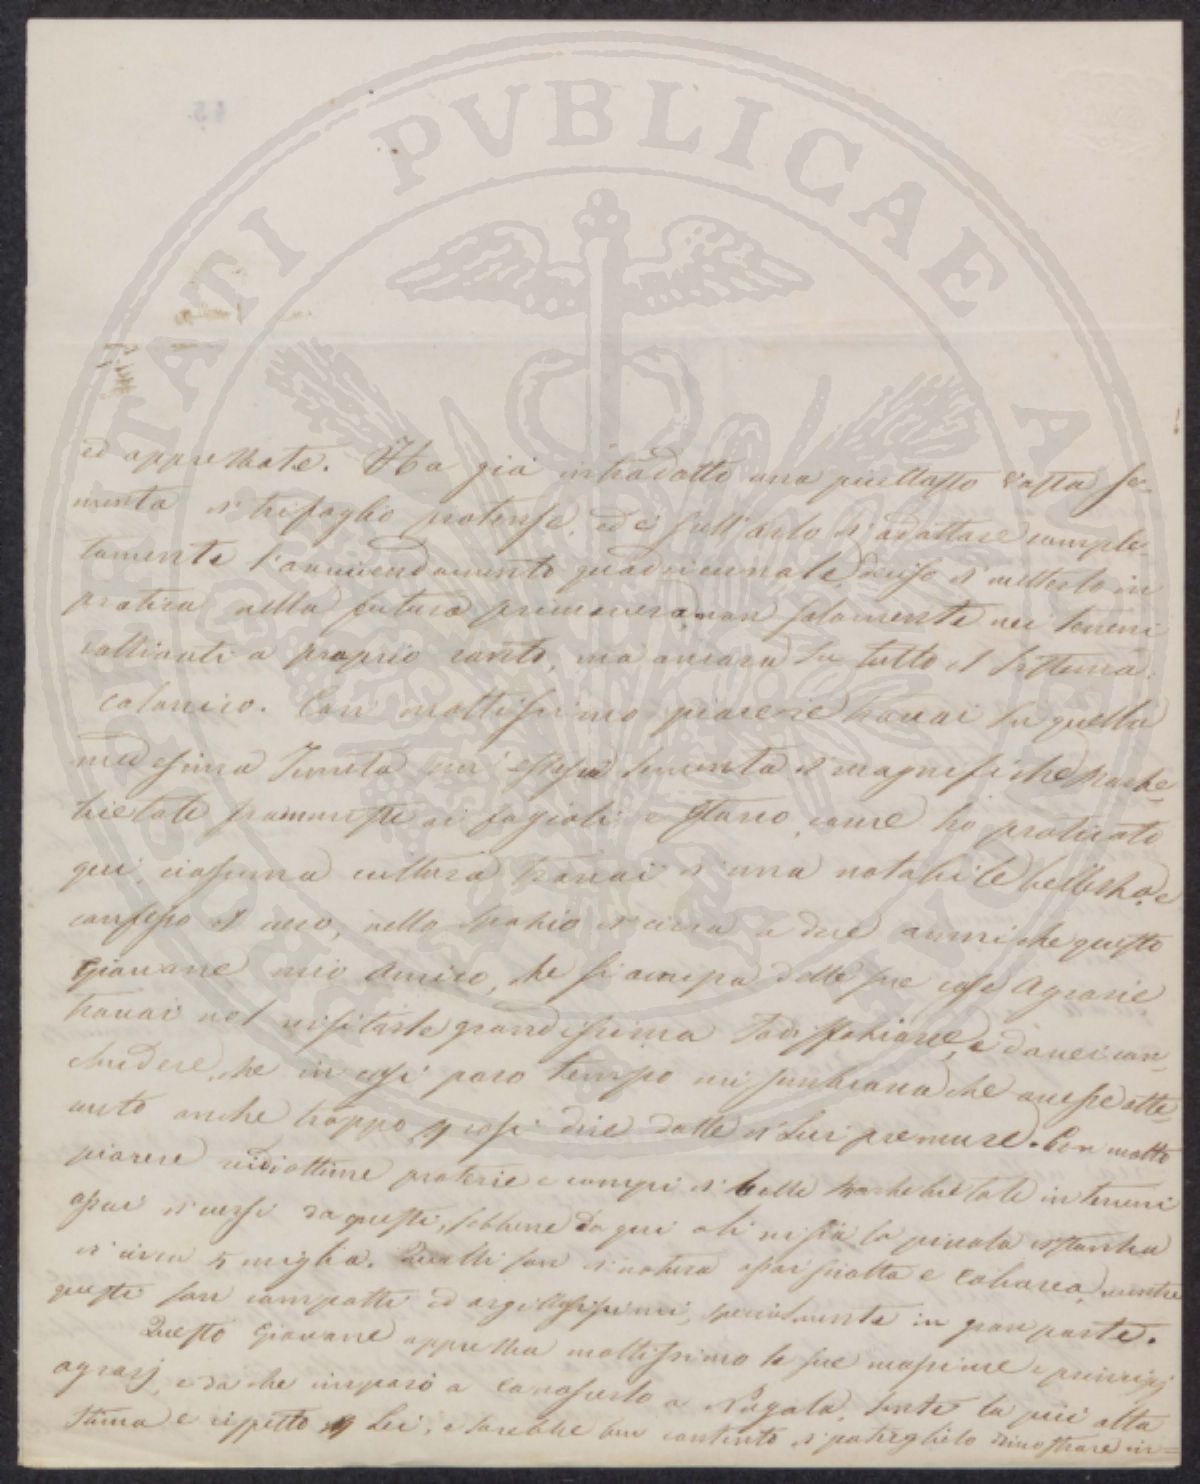 PROSPERITATI PVBLICAE AVGENDAE
ed apprezzate. Ha già introdotto una piuttosto vasta se-
menta di trifoglio pratense, ed è sull'atto d'adattare comple-
tamente l'avvicendamento quadriennale deciso di metterlo in
pratica nella futura primavera, non solamente nei terreni
coltivati a proprio conto, ma ancora su tutto il sistema
colonico. Con moltissimo piacere trovai su quella
medesima Tenuta un'estesa sementa di magnifiche barba-
bietole frammiste ai fagioli a Stano, come ho praticato
qui, ciascuna cultura trovai d'una notabile bellezza, e
confesso il vero, nello spazio di circa a due anni che questo
Giovane mio amico, che si occupa delle sue cose Agrarie
trovai nel visitarle grandissima sodisfazione, e dovei con-
chiudere, che in così poco tempo mi sembrava che avesse otte-
nuto anche troppo p così dire dalle di Lui premure. Con molto
piacere vidi ottime praterie e campi di belle barbabietole in terreni
assai diversi da questi, sebbene da qui a lì vi sia la piccola distanza
di circa 5 miglia. Quelli son di natura assai sciolta e calcarea, mentre
questi son compatti ed argillosissimi, specialmente in gran parte.
Questo Giovane apprezza moltissimo le sue massime e principj
agrarj, e da che imparò a conoscerlo a Pugola, sente la più alta
stima e rispetto p Lei, e sarebbe ben contento di poterglielo dimostrare in=